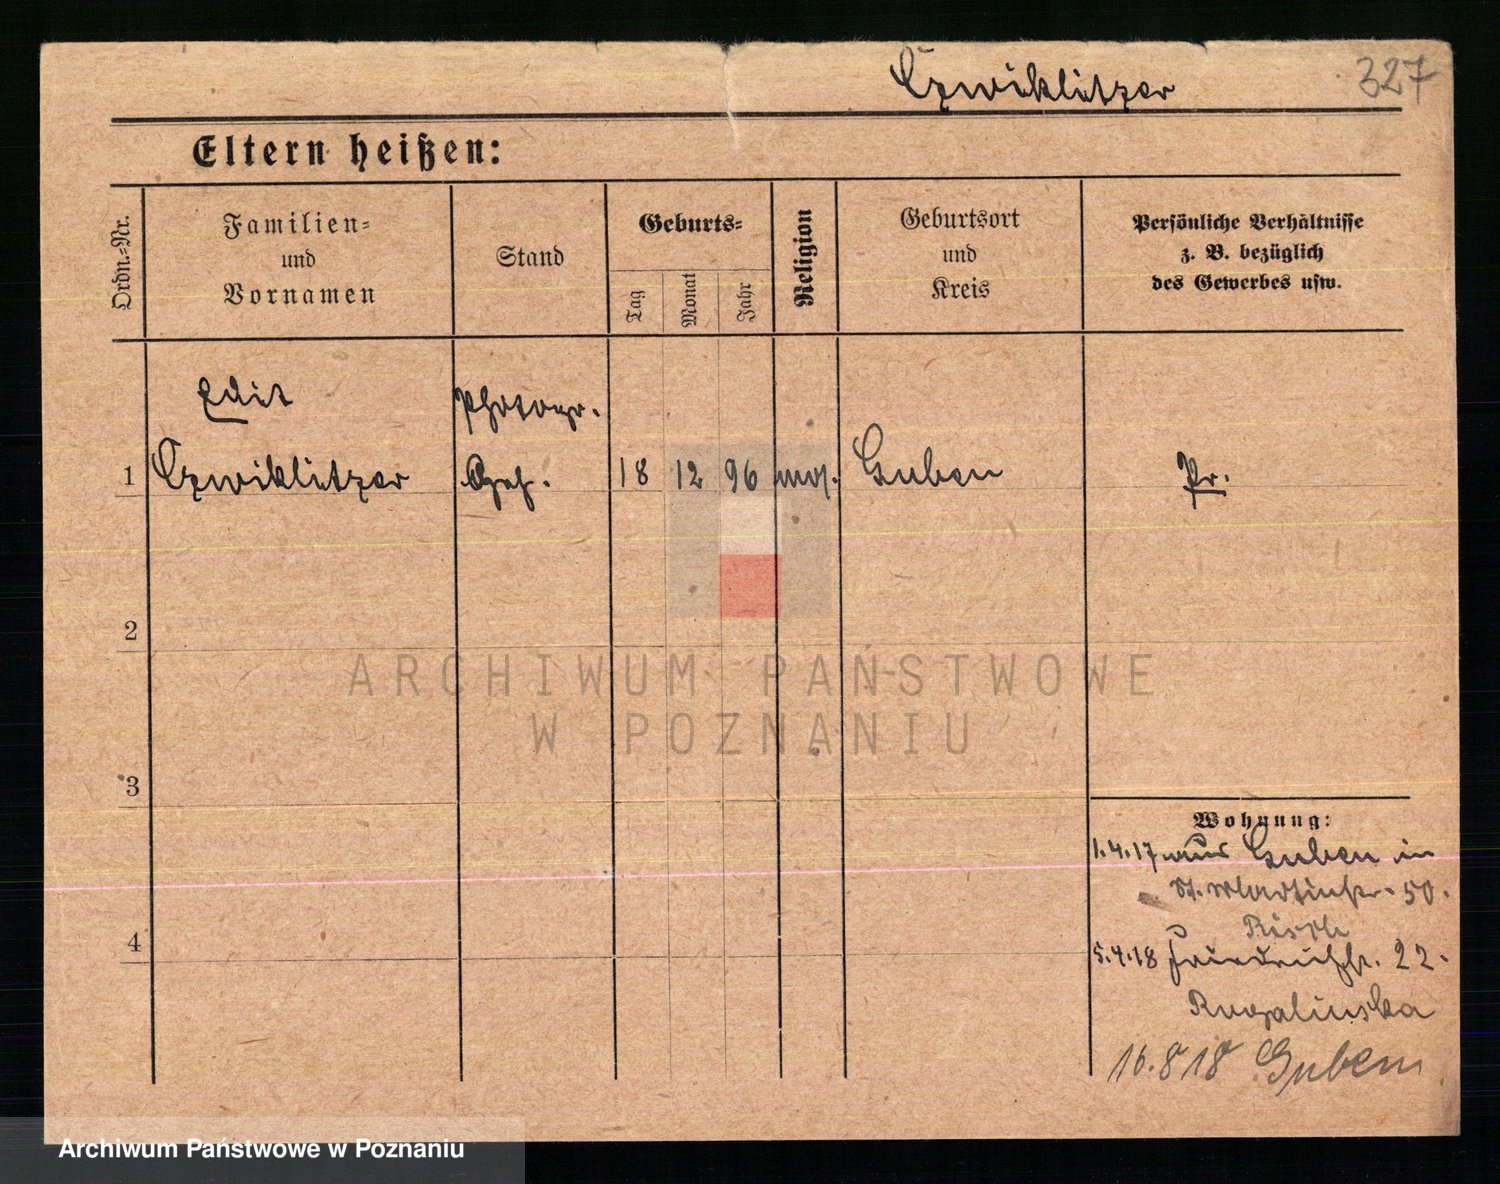 Czwiklitzer
327
Eltern heißen:
Ordn.-Nr.
Familien-
und
Vornamen
Stand
Geburts-
Tag
Monat
Jahr
Religion
Geburtsort
und
Kreis
Persönliche Verhältnisse
z. B. bezüglich
des Gewerbes usw.
Edit
Photogr.
1 Czwiklitzer Geh. 18 12 96 mos. Guben Pr.
2
3
4
Wohnung:
1.4.17 aus Guben in
St. Martinstr. 50.
5.4.18 Friedrichstr. 22.
Rogalinska
16.8 18 Guben
ARCHIWUM PAŃSTWOWE
W POZNANIU
Archiwum Państwowe w Poznaniu